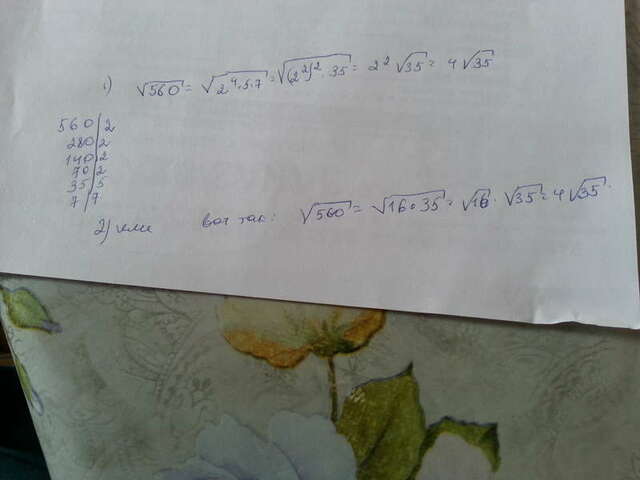 1) √560 = √2⁴·5·7 = √(2²)²·35 = 2²√35 = 4√35
560|2
280|2
140|2
70|2
35|5
7|7
2) или вот так: √560 = √16·35 = √16·√35 = 4√35.